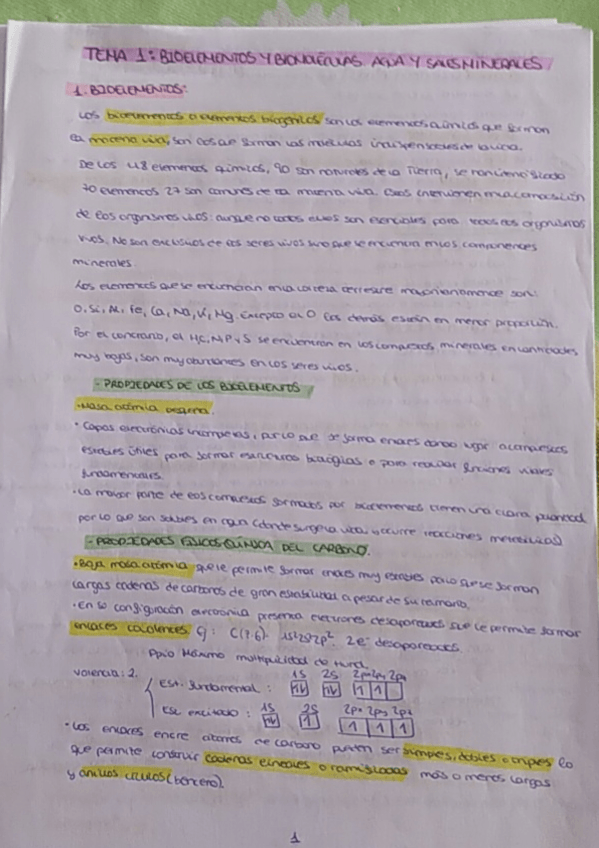 TEMA 1: BIOELEMENTOS Y BIOMOLÉCULAS AGUA Y SALES MINERALES
1. BIOELEMENTOS:
Los bioelementos o elementos biogénicos son los elementos químicos que forman
la materia viva, son los que forman las moléculas indispensables de la vida.
De los 118 elementos químicos, 90 son naturales de la Tierra, se han
70 elementos 27 son comunes de la materia viva. Estos intervienen en la composición
de los organismos vivos: aunque no todos ellos son esenciales para todos los organismos
vivos. No son exclusivos de los seres vivos sino que se encuentra en los componentes
minerales.
Los elementos que se encuentran en la corteza terrestre mayoritariamente son:
O, Si, Al, Fe, Ca, Na, K, Mg. Excepto el O los demás están en menor proporción.
Por el contrario, el H, C, N, P y S se encuentran en los compuestos minerales en cantidades
muy bajas, son muy abundantes en los seres vivos.
- PROPIEDADES DE LOS BIOELEMENTOS
· Masa atómica pequeña.
· Capas electrónicas incompletas, por lo que se forma enlaces dando lugar a compuestos
estables útiles para formar estructuras biológicas o para realizar funciones vitales
fundamentales.
· La mayor parte de los compuestos formados por bioelementos tienen una clara polaridad
por lo que son solubles en agua (donde surge la vida, y ocurre reacciones metabólicas)
- PROPIEDADES FÍSICO QUÍMICA DEL CARBONO.
· Baja masa atómica que le permite formar enlaces muy estables por lo que se forman
largas cadenas de carbonos de gran estabilidad a pesar de su tamaño.
· En su configuración electrónica presenta electrones desapareados que le permite formar
enlaces covalentes. Cj: C(Z:6): 1s² 2s² 2p². 2e⁻ desapareados.
Ppio Máximo multiplicidad de Hund.
Valencia: 2.
1S 2S 2px 2py 2pz
Est. fundamental: ↑↓ ↑↓ 1 1
1S 2S 2px 2py 2pz
Est. excitado: ↑↓ 1 1 1 1
· Los enlaces entre átomos de carbono pueden ser simples, dobles o triples lo
que permite construir cadenas lineales o ramificadas más o menos largas
y anillos (benceno).
1